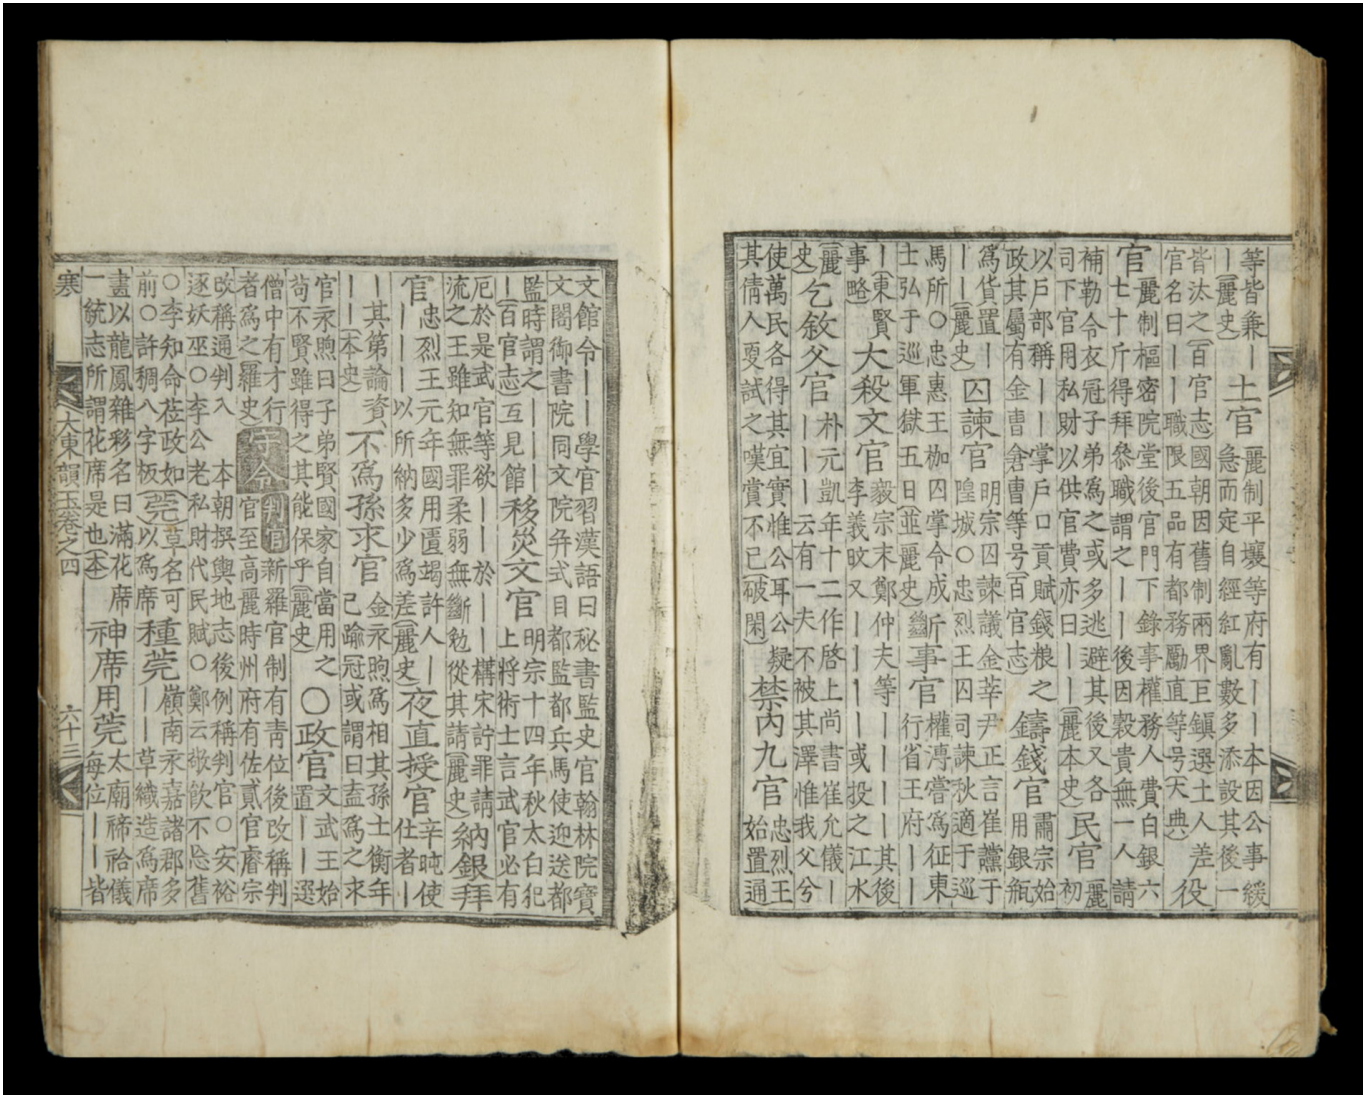 等皆兼｜
｜(麗史)
土官
麗制平壤等府有｜｜本因公事緩
急而定自經紅亂數多添設其後一
皆汰之(百官志)國朝因舊制兩界巨鎭選土人差
官名曰｜｜職限五品有都務勵直等号(天典)
役
官
麗制樞密院堂後官門下錄事權務人費白銀六
七十斤得拜叅職謂之｜｜後因穀貴無一人請
補勒令衣冠子弟爲之或多逃避其後又各
司下官用私財以供官費亦曰｜｜(麗本史)
民官
麗
初
以戶部稱｜｜掌戶口貢賦錢粮之
政其屬有金曹倉曹等号(百官志)
鑄錢官
肅宗始
用銀瓶
爲貨置｜
｜｜(麗史)
囚諫官
明宗囚諫議金莘尹正言崔讜于
隍城○忠烈王囚司諫秋適于巡
馬所○忠惠王枷囚掌令成
士弘于巡軍獄五日(並麗史)
斷事官
權漙嘗爲征東
行省王府｜｜
｜(東賢
事略)
大殺文官
毅宗末鄭仲夫等｜｜｜｜其後
李義旼又｜｜｜｜或投之江水
(麗
史)
乞敘父官
朴元凱年十二作啓上尚書崔允儀｜
｜｜｜云有一夫不被其澤惟我父兮
使萬民各得其宜實惟公耳公疑
其倩人更試之嘆賞不已(破閑)
禁內九官
忠烈王
始置通
文館令｜｜學官習漢語曰秘書監史官翰林院寶
文閣御書院同文院幷式目都監都兵馬使迎送都
監時謂之｜｜｜｜
｜(百官志)互見館
移災文官
明宗十四年秋太白犯
上將術士言武官必有
厄於是武官等欲｜｜於｜｜構宋訏罪請
流之王雖知無罪柔弱無斷勉從其請(麗史)
納銀拜
官
忠烈王元年國用匱竭許人｜
｜｜｜以所納多少爲差(麗史)
夜直授官
辛旽使
仕者｜
｜其第論資
｜｜(本史)
不爲孫求官
金永煦爲相其孫士衡年
已踰冠或謂曰盍爲之求
官永煦曰子弟賢國家自當用之
苟不賢雖得之其能保乎(麗史)
○政官
文武王始
置｜｜選
僧中有才行
者爲之(羅史)
守令
判官
新羅官制有靑位後改稱判
官至高麗時州府有佐貳官睿宗
改稱通判入　本朝撰輿地志後例稱判官○安裕
逐妖巫○李公老私財代民賦○鄭云敬飮不忘舊
○李知命莅政如
前○許稠八字板
(莞)
草名可
以爲席
種莞
嶺南永嘉諸郡多
｜｜草織造爲席
畫以龍鳳雜彩名曰滿花席
一統志所謂花席是也(本)
神席用莞
太廟禘祫儀
每位｜｜皆
寒
大東韻玉卷之四
六十三